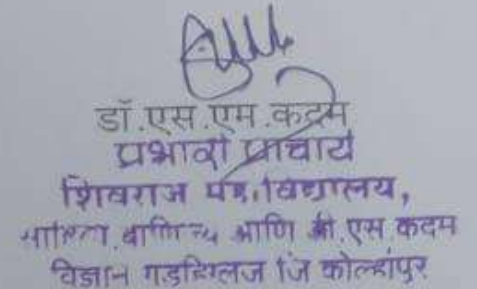 डॉ.एस.एम.कदम
प्रभारी प्राचार्य
शिवराज महाविद्यालय,
वाणिज्य आणि डी.एस कदम
विज्ञान गडहिंग्लज जि कोल्हापूर